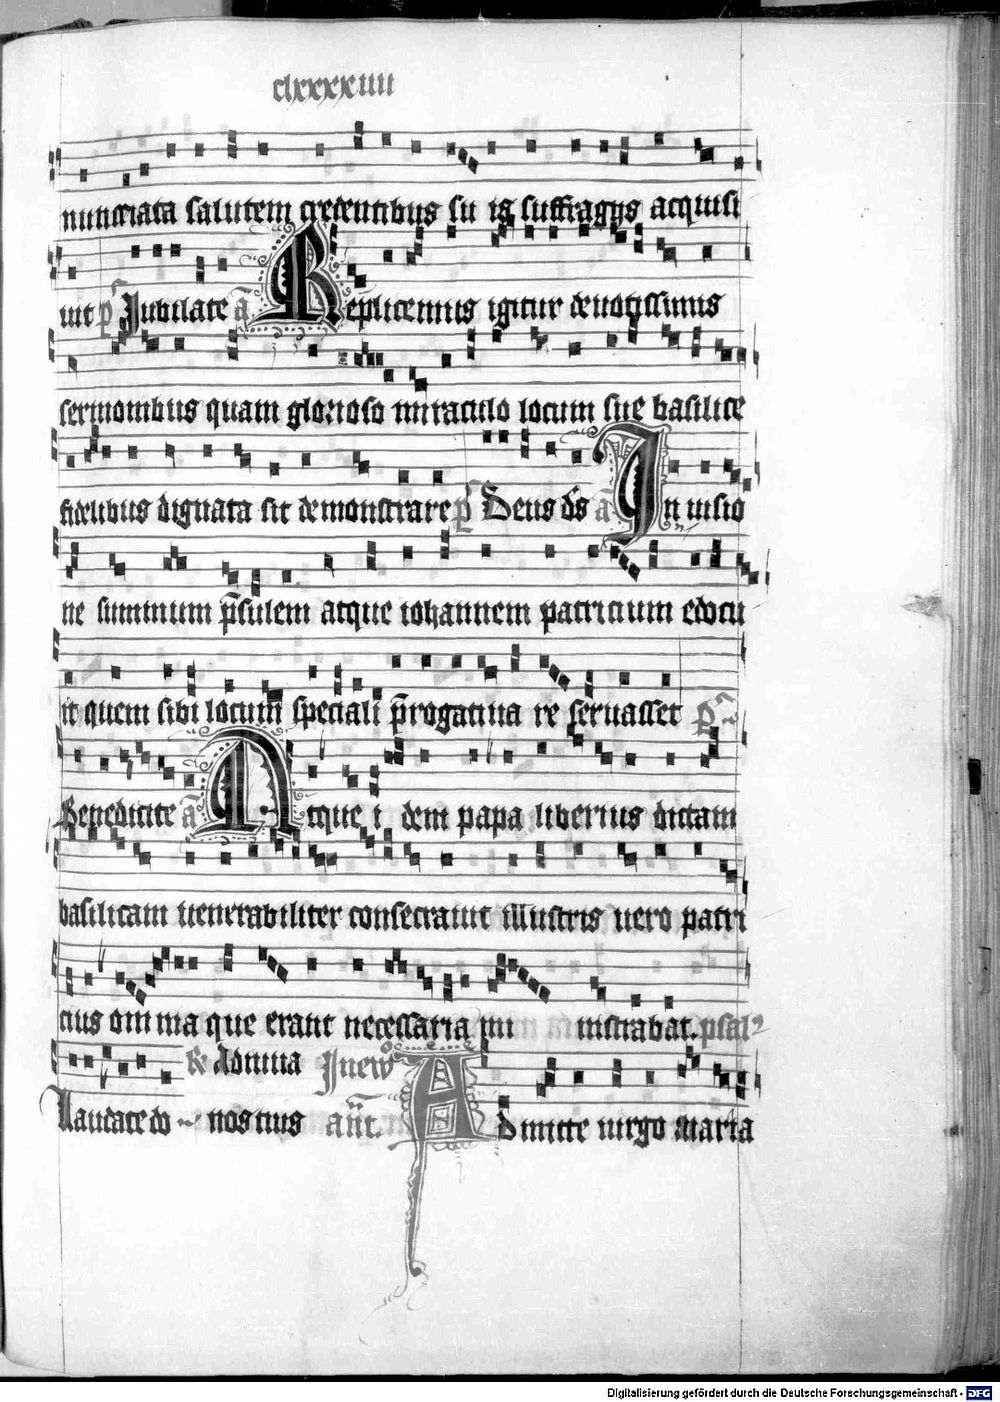 clxxxxiiii
nunctiata salutem credentibus su is suffragijs acquisi
uit p̄s Jubilate a̅ Replicemus igitur deuotissimus
sermonibus quam glorioso miraculo locum sue basilice
fidelibus dignata sit demonstrare p̄s Deus ds̄ a̅ In uisio
ne summum p̄sulem atque iohannem patricium edocu
it quem sibi locum speciali p̄rogatiua re seruasset p̄s
Benedicite a̅ Atque i dem papa liberius dictam
basilicam uenerabiliter consecrauit illustris uero patri
cius omnia que erant necessaria mi nistrabat. psal
R Domina Jn ew̅
Laudate do nostrius an̅t. Admitte uirgo maria
Digitalisierung gefördert durch die Deutsche Forschungsgemeinschaft - DFG